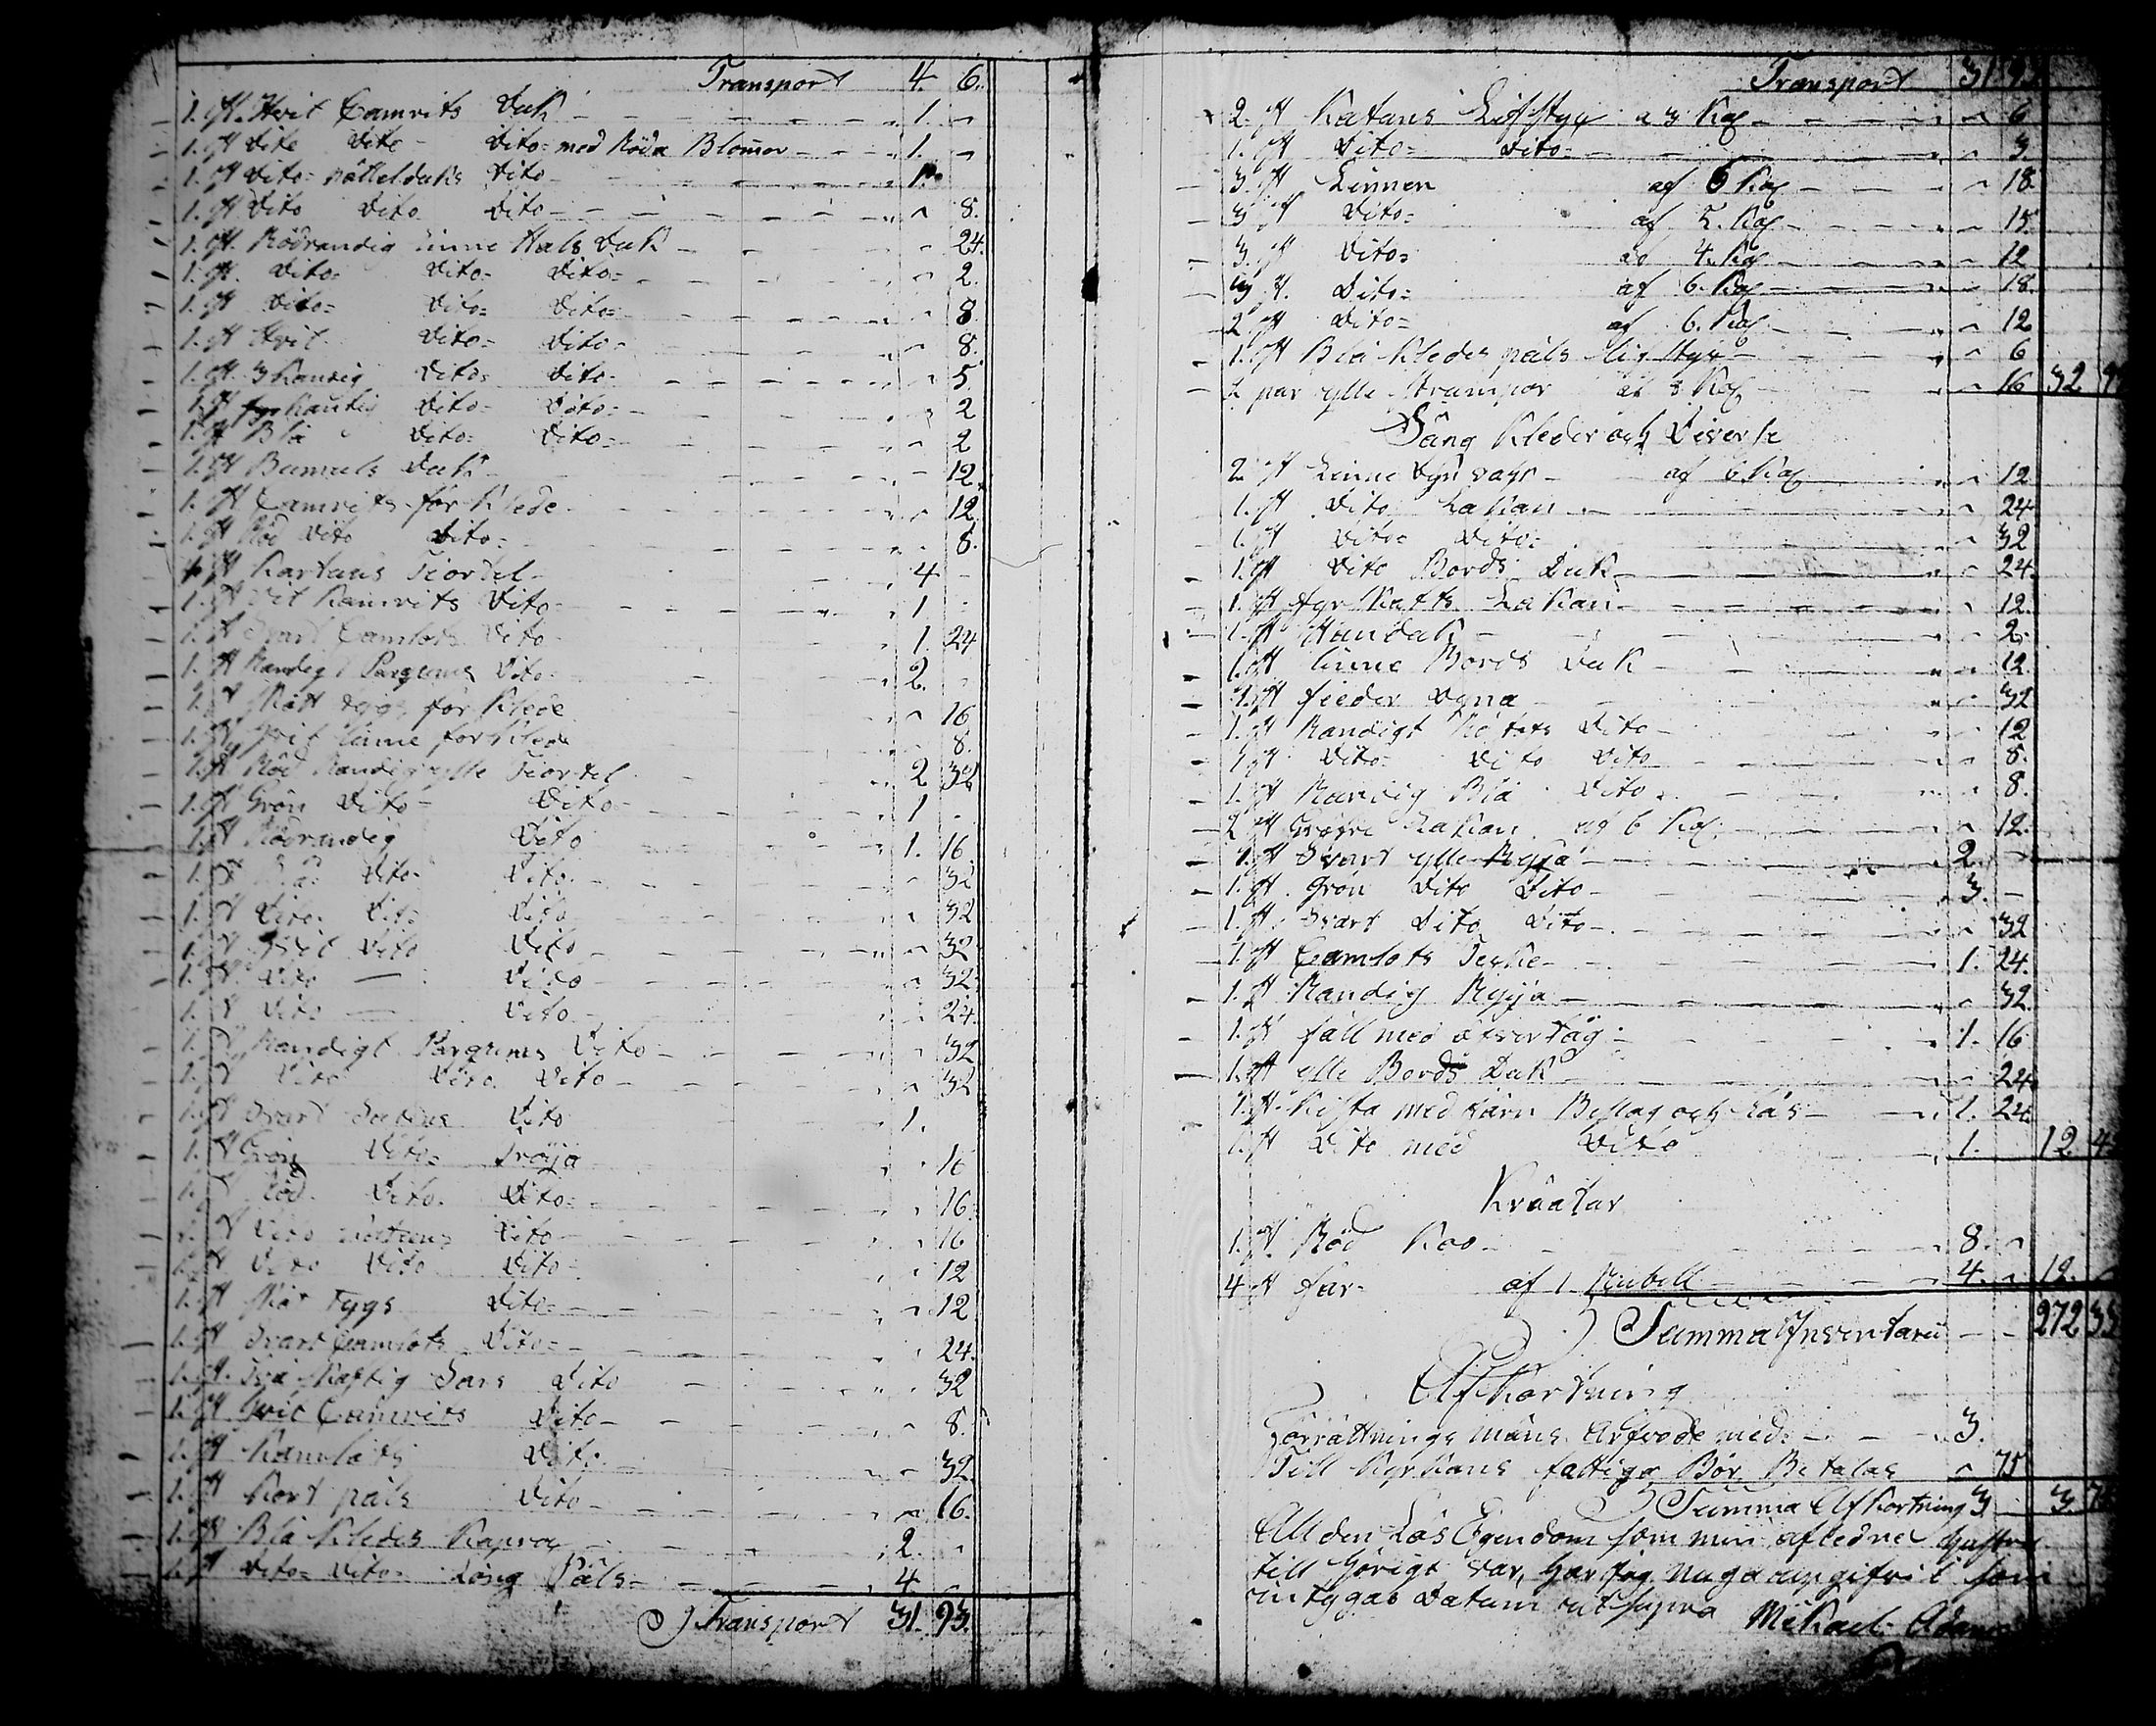 Transport 4. 6.
1. st. Hvit Camrits Duk 1. -
1. st Dito Dito Dito med Röda Blomor 1. -
1. st Dito nättelduks Dito 1.
1. st Dito Dito Dito 8.
1. st. Rödrandig Linne Hals Duk 24.
1. st. Dito Dito Dito 2.
1. st Dito Dito Dito 8
1. st Hvit Dito Dito 8.
1. st. 3 Kantig Dito Dito 5
1. st fyrkantig Dito Dito 2
1. st Blå Dito Dito 2
1. st Bumuls Duk 12
1. st Camrits förklede 12
1. st Röd Dito Dito 8.
1. st Kartuns Tiortel 4 -
1. st Vit Kamrits Dito 1 -
1. st Svart Camlots Dito 1. 24
1. st Randigt Pargums Dito 2. -
1. st Nått tygs förklede 16
1. st Hvit Linne förklede 8.
1. st Röd Randig ylle Tiortel 2 32
1. st Grön Dito Dito 1 -
1. st Rödrandig Dito 1. 16
1. st Blå Dito Dito 32
1. st Dito Dito Dito 32
1. st Hvit Dito Dito 32
1. st Dito — Dito 32
1. st Dito — Dito 24.
1. st Randigt Pargums Dito 32
1. st Dito Dito Dito 32
1. st Svart Satins Dito 1.
1. st Grön Dito Tröija 16
1. st Röd Dito Dito 16
1. st Dito Dito 16
1. st Dito Dito Dito 12
1. st Tygs Dito 12
1. st Svart Camlots Dito 24.
1. st. Två Skaftig Sars Dito 32
1. st Hvit Camrits Dito 8.
1. st Kamlots Dito 32
1. st Kort päls Dito 16.
1. st Blå Kledes Kaprog 2.
1. st Dito Dito Lång Päls 4
Transport 31. 93.
Transport 31 93
2. st Katuns Lifstyx a 3 Kop 6
1. st Dito Dito 3.
3. st Linnen af 6 Kop 18
3 st Dito af 5. Kop 15
3. st Dito af 4. Kop 12
3 st. Dito af 6. Kop 18
2 st Dito af 6. Kop 12
1. st Blå Kledes päls lifstyx 6
2 par ylle Strumpor af 8 Kop 16 32
Säng Kleder och Diverse
2 st Linne Dyn vahr af 6 Kop 12
1. st Dito Lakan 24
1. st Dito Dito 32
1. st Dito Bords Duk 24.
1. st fyr skafts Lakan 12.
1. st Handuk 2.
1. st Linne Bords Duk 12
1. st fieder Dyna 32
1. st Randigt Dito 12
1 st Dito Dito Dito 8.
1. st Randig Blå Dito 8.
2 st Gröfre Lakan af 6 Kop 12.
1. st Svart ylle Ryija 2. -
1. st. Grön Dito Dito 3. -
1. st. Svart Dito Dito 32
1. st Camlots Teckie 1. 24.
1. st Randig Ryija 32
1. st fäll med öfvertåg 1. 16
1. st ylle Bords Duk 24.
1. st. Kista med Järn Beslag och Lås 1. 24
1. st Dito med Dito 1. 12
Kräatur
1. st. Röd Koo 8.
4 st får af 1 Rubell 4. 12.
Summa Inventarii 272
Afkortning
Förrättnings mäns Arfvode med 3.
Till Kyrkans fattiga Bör Betalas 75
Summa Afkortning 3. 3
All den Lös Egendom som min afledne hustru
till hörigt var, har jag noga angifvit som
intygas Datum ut supra Mikael